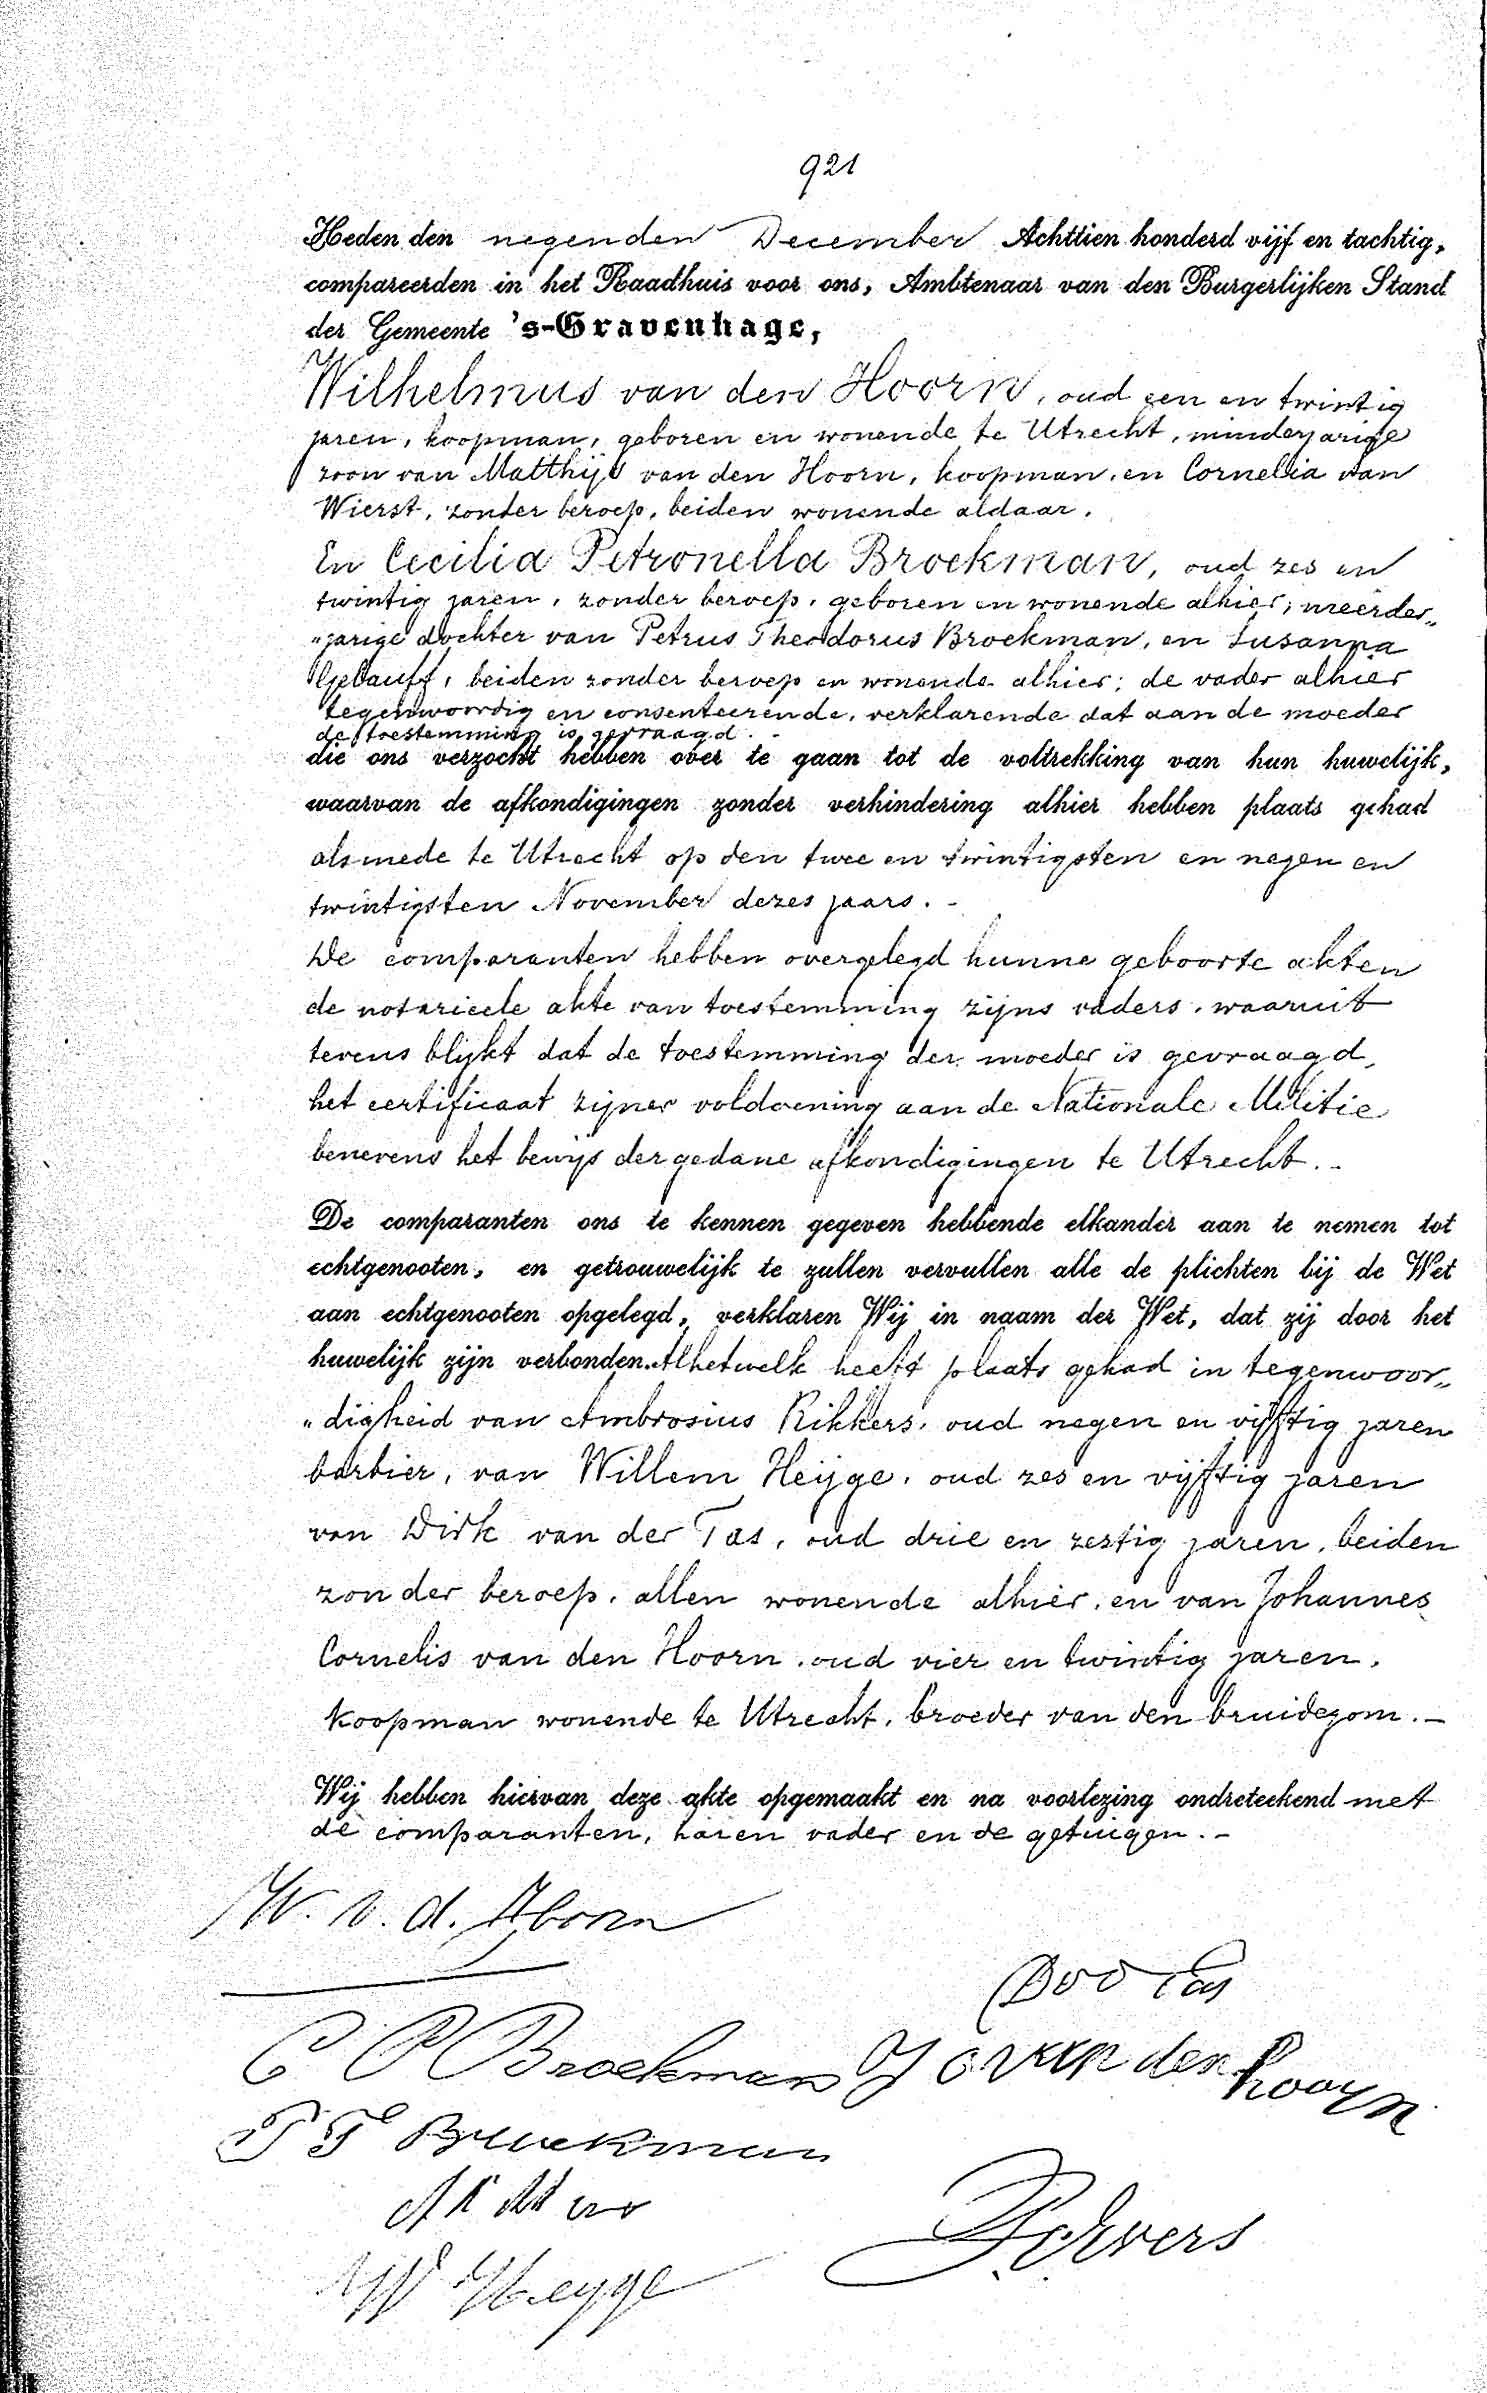 921
Heden den negenden December Achttien honderd vijf en tachtig,
compareerden in het Raadhuis voor ons, Ambtenaar van den Burgerlijken Stand
der Gemeente 's-Gravenhage,
Wilhelmus van den Hoorn, oud een en twintig
jaren, koopman, geboren en wonende te Utrecht, minderjarige
zoon van Matthijs van den Hoorn, koopman, en Cornelia van
Wierst, zonder beroep, beiden wonende aldaar.
En Cecilia Petronella Broekman, oud zes en
twintig jaren, zonder beroep, geboren en wonende alhier, meerder„
„jarige dochter van Petrus Theodorus Broekman, en Susanna
Gebauff, beiden zonder beroep en wonende alhier; de vader alhier
tegenwoordig en consenteerende, verklarende dat aan de moeder
de toestemming is gevraagd.-
die ons verzocht hebben over te gaan tot de voltrekking van hun huwelijk,
waarvan de afkondigingen zonder verhindering alhier hebben plaats gehad
alsmede te Utrecht op den twee en twintigsten en negen en
twintigsten November dezes jaars.-
De comparanten hebben overgelegd hunne geboorte akten
de notarieele akte van toestemming zijns vaders, waaruit
tevens blijkt dat de toestemming der moeder is gevraagd,
het certificaat zijner voldoening aan de Nationale Militie
benevens het bewijs der gedane afkondigingen te Utrecht.-
De comparanten ons te kennen gegeven hebbende elkander aan te nemen tot
echtgenooten, en getrouwelijk te zullen vervullen alle de plichten bij de Wet
aan echtgenooten opgelegd, verklaren Wij in naam der Wet, dat zij door het
huwelijk zijn verbonden. Alhetwelk heeft plaats gehad in tegenwoor„
„digheid van Ambrosius Rikkers, oud negen en vijftig jaren
barbier, van Willem Heijge, oud zes en vijftig jaren
van Dirk van der Tas, oud drie en zestig jaren, beiden
zonder beroep, allen wonende alhier, en van Johannes
Cornelis van den Hoorn, oud vier en twintig jaren,
koopman wonende te Utrecht, broeder van den bruidegom.-
Wij hebben hiervan deze akte opgemaakt en na voorlezing ondreteekend met
de comparanten, haren vader en de getuigen.-
W. v. d. Hoorn
D v d Tas
C P Broekman
J C van den Hoorn
P T Broekman
W Heyge